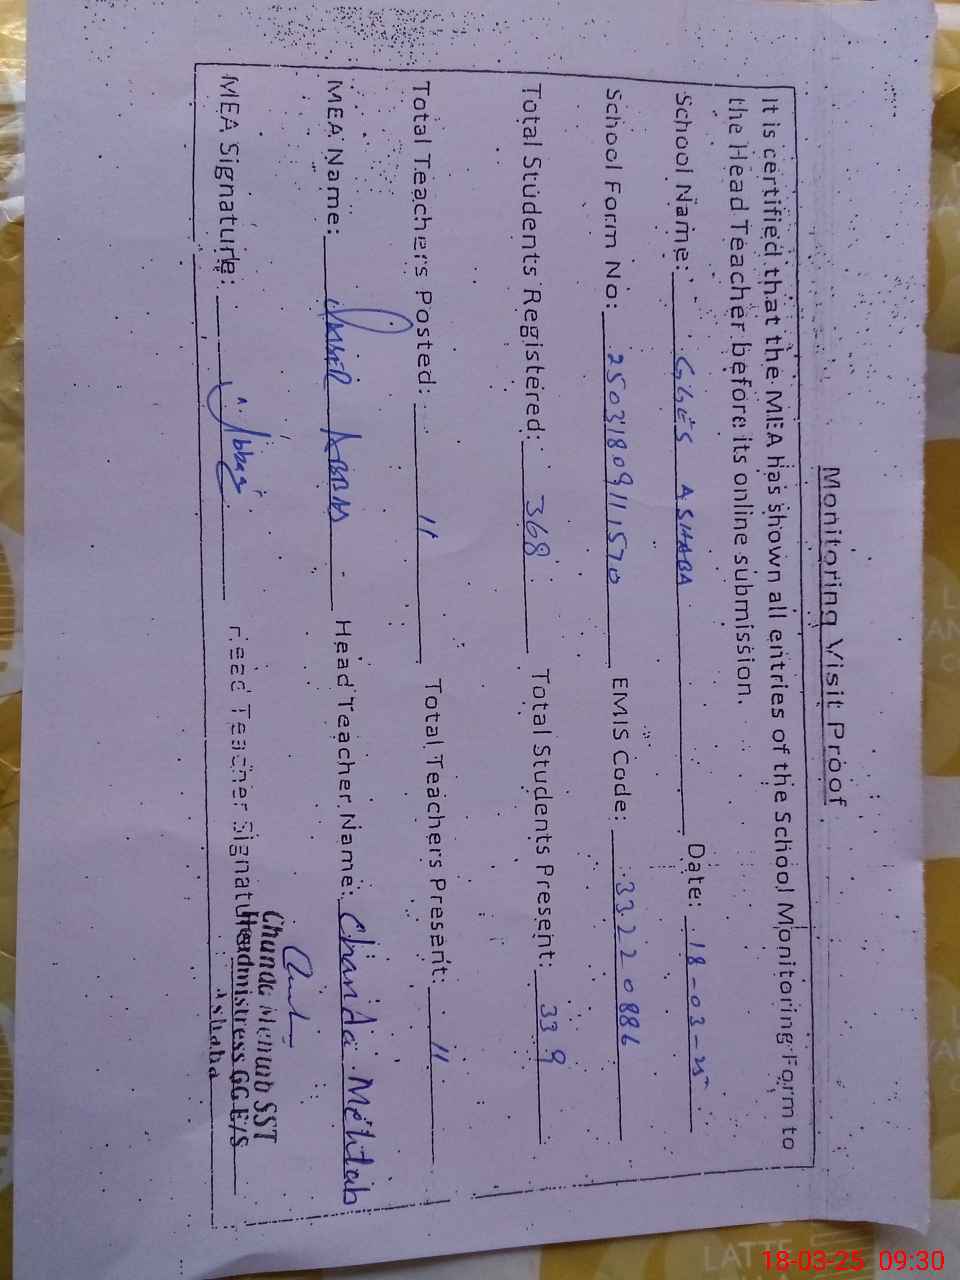 Monitoring Visit Proof
It is certified that the MEA has shown all entries of the School Monitoring Form to
the Head Teacher before its online submission.
School Name: GGES ASHABA Date: 18-03-25
School Form No: 25031809111570 EMIS Code: 33220886
Total Students Registered: 368 Total Students Present: 339
Total Teachers Posted: 11 Total Teachers Present: 11
MEA Name: Abbas Head Teacher Name: Chanda Mehtab
MEA Signature: Abbas Head Teacher Signature
Chanda Mehtab SST
Headmistress GGE/S
Ashaba
LATTE
18-03-25 09:30